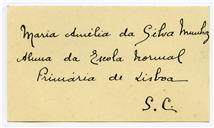 Maria Amélia da Silva Munhoz
Aluna da Escola Normal
Primária de Lisboa
S. C.